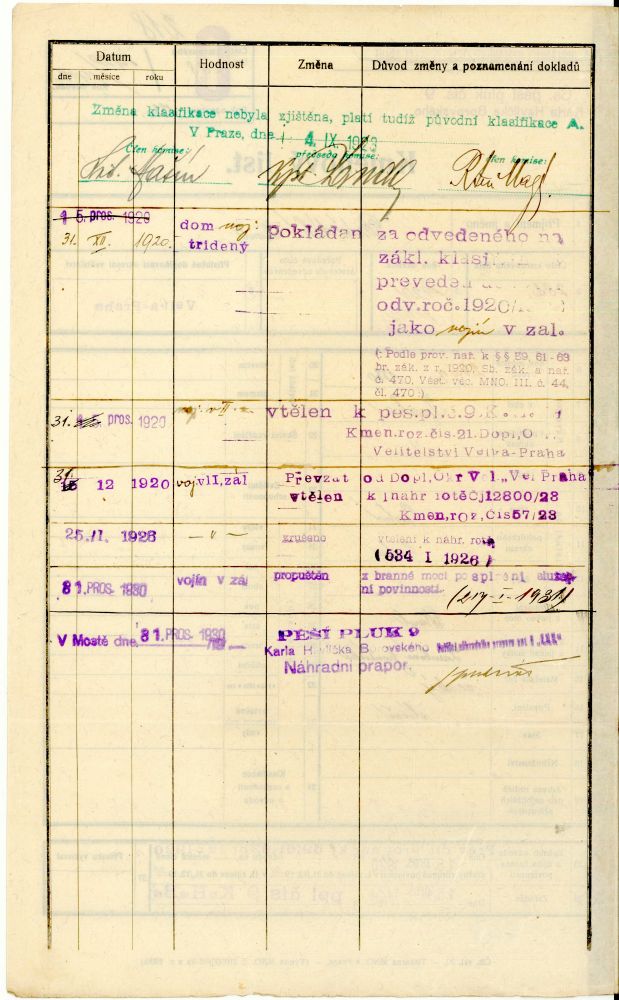 Datum Hodnost Změna Důvod změny a poznamenání dokladů
dne měsíce roku
Změna klasifikace nebyla zjištěna, platí tudíž původní klasifikace A.
V Praze, dne 4. IX. 1923
Člen komise: předseda komise: Člen komise:
15. pros. 1920
31. XII. 1920. dom voj. Pokládán za odvedeného na
tridený zákl. klasi
preveden
odv. roč. 1920/
jako vojín v zal.
(: Podle prov. nař. k §§ 59, 61-63
br. zák. z r. 1920, Sb. zák. a nař.
č. 470, Věst. věc. MNO. III. č. 44,
čl. 470:)
31. pros. 1920 vtělen k pěš. pl. č. 9. K.
Kmen. roz. čís. 21. Dopl, O
Velitelství Velká-Praha
31. 12 1920 voj v II, zál Převzat od Dopl, Okr Vel „Vel Praha
vtělen k náhr rotě Čj 12800/23
Kmen, roz, Čís 57/23
25./I. 1926 — " — zrušeno vtělení k náhr. rotě
(534 I 1926)
31. PROS. 1930 vojín v zál propuštěn z branné moci po splnění služeb
ní povinnosti.
V Mostě dne 31. PROS. 1930 PĚŠÍ PLUK 9
Karla Havlíčka Borovského
Náhradní prapor.